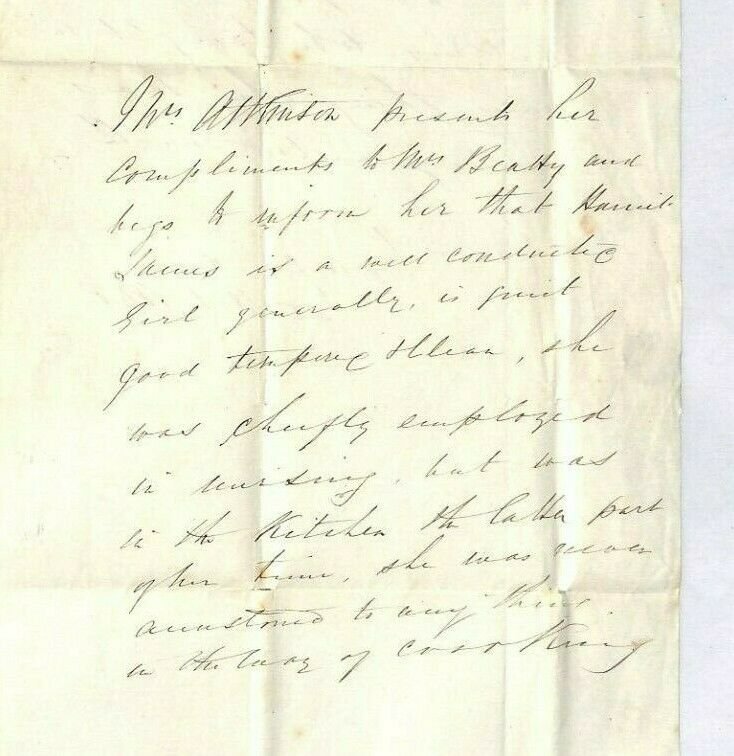 Mrs Atkinson presents her
compliments to Mrs Beatty and
begs to inform her that Harriet
James is a well conducted
Girl generally, is quiet
good tempered & clean, she
was chiefly employed
in nursing, but was
in the Kitchen the latter part
of her time, she was never
accustomed to any thing
in the way of cooking